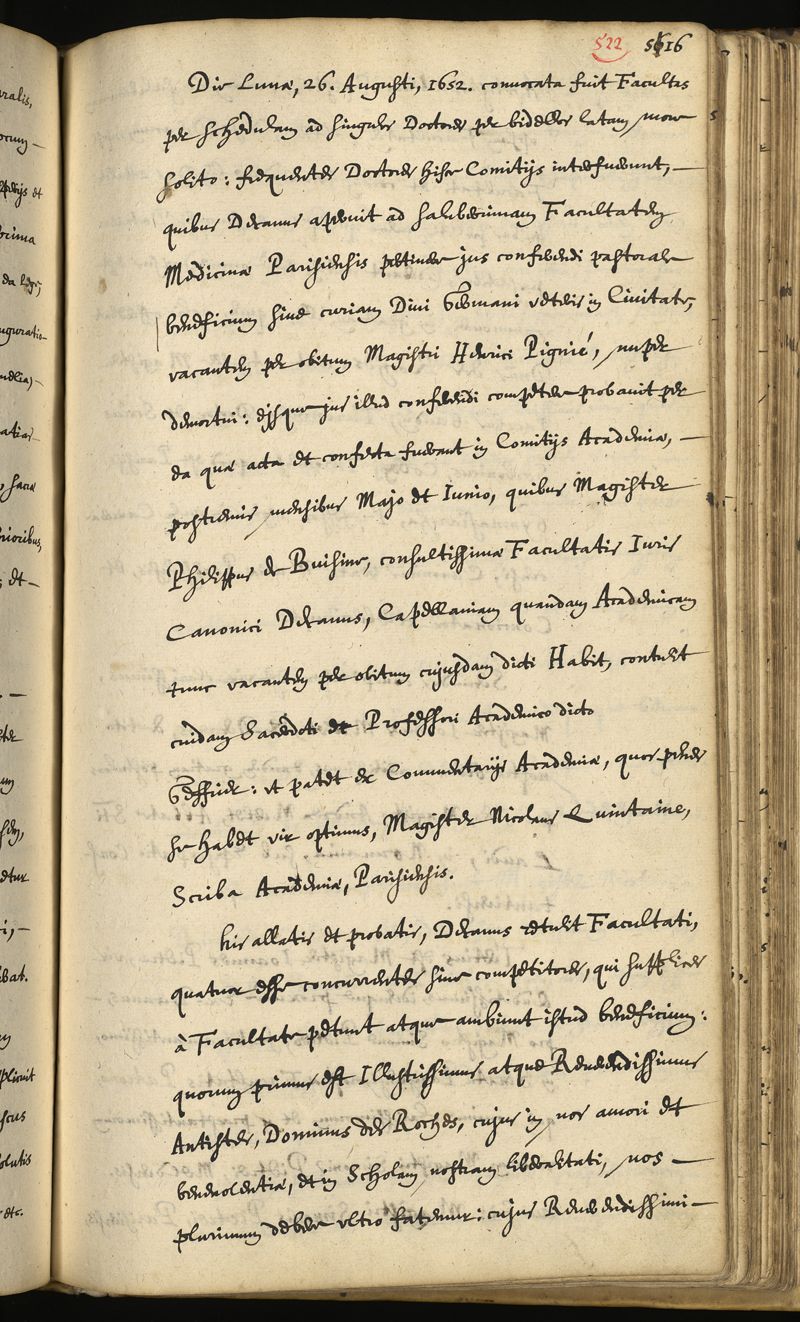 522 516
Die Lunæ, 26. Augusti, 1652. convocata fuit Facultas
per schedulam ad singulos Doctores per bidellos latam more
solito: frequentes Doctores hisce Comitijs interfuerunt,
quibus Decanus aperuit ad saluberrimam Facultatem
Medicinæ Parisiensis pertinere jus conferendi pastorale
beneficium sive curiam Divi Germani veteris in Civitate,
vacantem per obitum Magistri Henrici Pignié, nuper
demortui: ejsque jus illud conferendi competere probauit per
ea quæ acta et confecta fuerant in Comitijs Academiæ,
postremis mensibus Majo et Iunio, quibus Magister
Philippus de Buisine, consultissimæ Facultatis Iuris
Canonici Decanus, Capellaniam quandam Academicam
tunc vacantem per obitum cujusdam dicti Habit, contulit
cuidam Sacerdoti et Professori Academico dicto
: ut patet ex Commentarijs Academiæ, quos penes
se habet vir optimus, Magister Nicolaus Quintaine,
Scriba Academiæ, Parisiensis.
his allatis et probatis, Decanus retulit Facultati,
quatuor esse concurrentes sive competitores, qui supplices
à Facultate petunt atque ambiunt istud beneficium:
quorum primus est Illustrissimus atque Reverendissimus
Antistes, Dominus des Roches, cujus in nos amori et
benevolentiæ, et in Scholam nostram liberalitati, nos
plurimum debere ultro fatemur: cujus Reverendissimi
ralis,
et
da
sacræ
rioribus,
et
bat.
plicuit
etc.